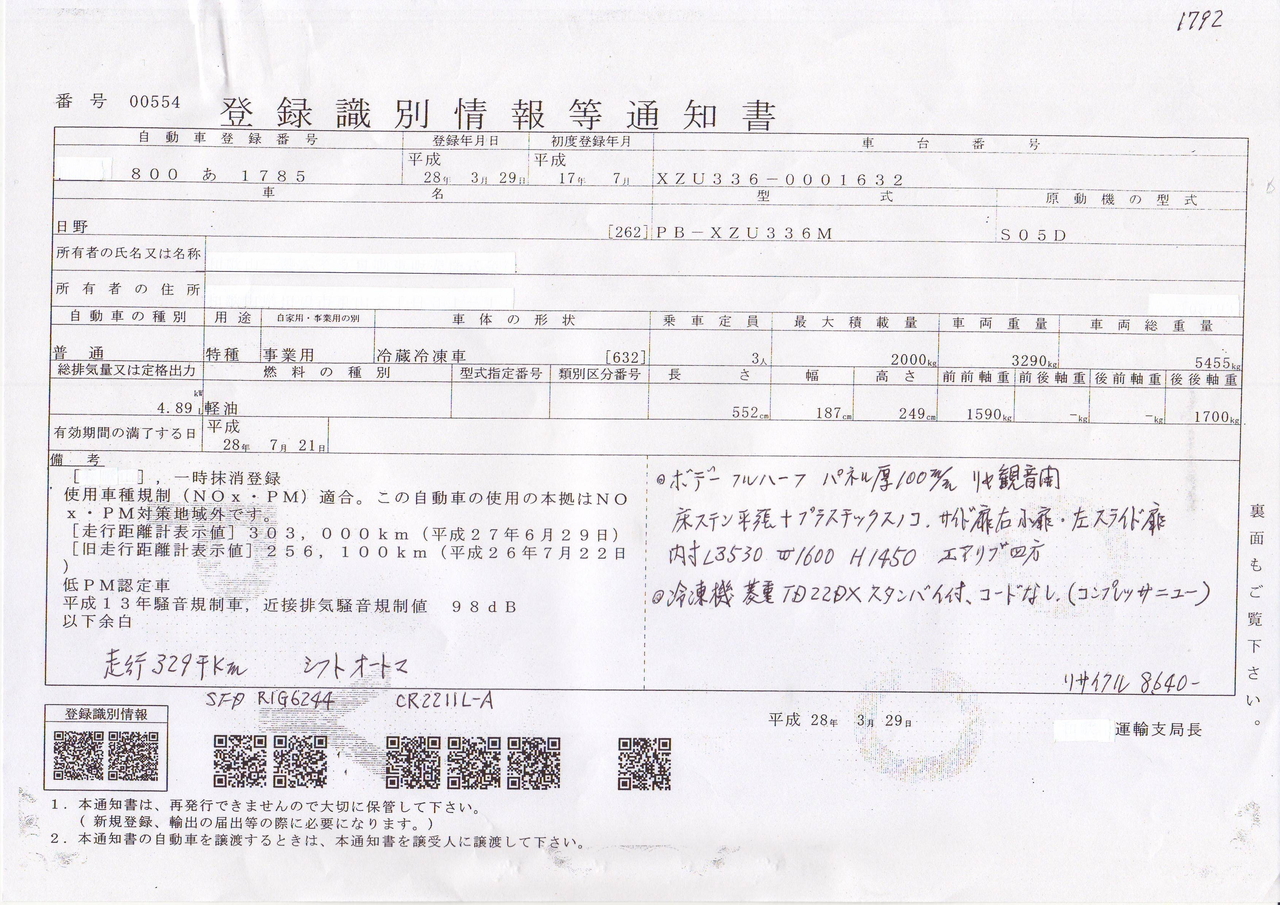 1792
番号 00554 登録識別情報等通知書
自動車登録番号 登録年月日 初度登録年月 車台番号
800 あ 1785 平成 28年 3月 29日 平成 17年 7月 XZU336-0001632
車名 型式 原動機の型式
日野 [262] PB-XZU336M S05D
所有者の氏名又は名称
所有者の住所
自動車の種別 用途 自家用・事業用の別 車体の形状 乗車定員 最大積載量 車両重量 車両総重量
普通 特種 事業用 冷蔵冷凍車 [632] 3人 2000kg 3290kg 5455kg
総排気量又は定格出力 燃料の種別 型式指定番号 類別区分番号 長さ 幅 高さ 前前軸重 前後軸重 後前軸重 後後軸重
kW 4.89 L 軽油 552cm 187cm 249cm 1590kg -kg -kg 1700kg
有効期間の満了する日 平成 28年 7月 21日
備考
[ ],一時抹消登録
使用車種規制(NOx・PM)適合。この自動車の使用の本拠はNO
x・PM対策地域外です。
[走行距離計表示値]303,000km(平成27年6月29日)
[旧走行距離計表示値]256,100km(平成26年7月22日
)
低PM認定車
平成13年騒音規制車,近接排気騒音規制値 98dB
以下余白
走行329千Km シフトオートマ
◎ボデー フルハーフ パネル厚100m/m リヤ観音開
床ステン平張+プラスチックスノコ.サイド扉右小扉・左スライド扉
内寸L3530 W1600 H1450 エアリブ四方
◎冷凍機 菱重 TD22DX スタンバイ付、コードなし.(コンプレッサニュー)
リサイクル 8640-
裏面もご覧下さい。
RIG6244 CR2211L-A
登録識別情報
平成 28年 3月 29日 運輸支局長
1.本通知書は、再発行できませんので大切に保管して下さい。
(新規登録、輸出の届出等の際に必要になります。)
2.本通知書の自動車を譲渡するときは、本通知書を譲受人に譲渡して下さい。